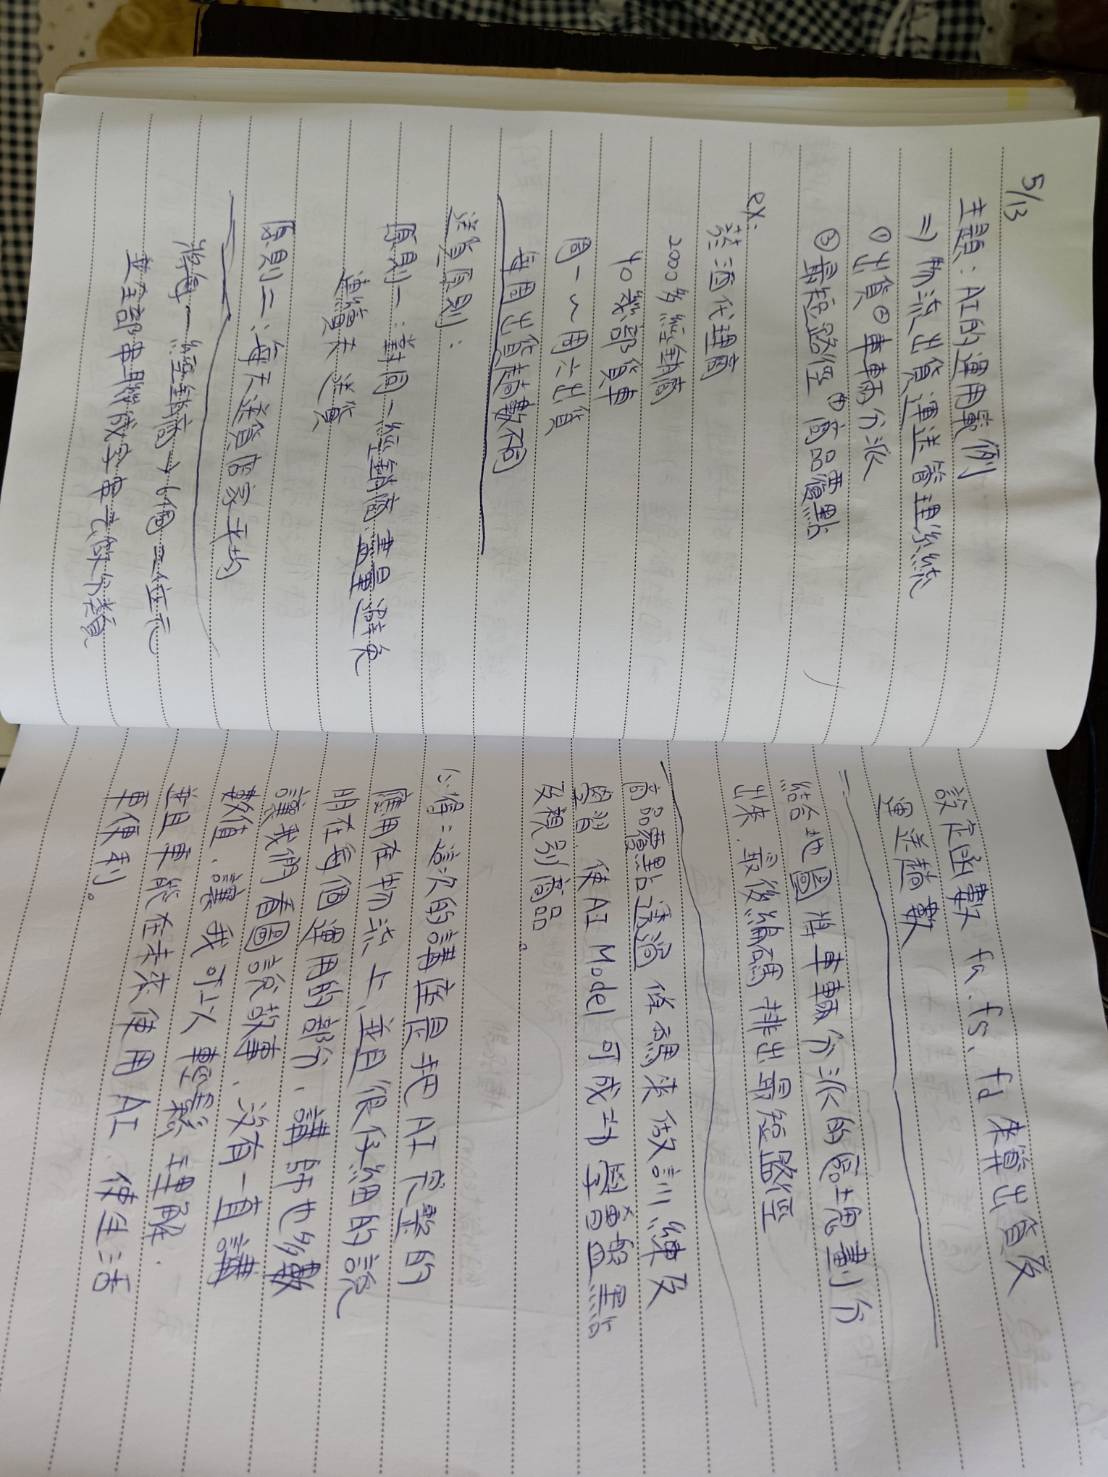 5/13
主題：AI的運用載例
⇒物流出貨運送管理系統
①出貨 ②車輛分派
③最短路徑 ④商品覆點
ex:
菸酒代理商
2000多經銷商
40幾部貨車
周一～周六出貨
每周出貨趟數不同
送貨原則：
原則一：對同一經銷商盡量避免
連續天送貨
原則二：每天送貨店家平均
將每一經銷商→6個二位元
並全部串聯成字串去做分類
設定函數 fa、fs、fd 來算出貨及
運送趟數
結合地圖將車輛分派的區塊劃分
出來、最後編碼排出最短路徑
商品覆點透過條碼來做訓練及
學習 使AI Model可成功學會盤點
及視別商品。
心得：這次的講座是把AI完整的
應用在物流上、並且很仔細的說
明在每個運用的部分、講師也多數
讓我們看圖說故事、沒有一直講
數值、讓我可以輕鬆理解、
並且更能在未來使用AI、使生活
更便利。